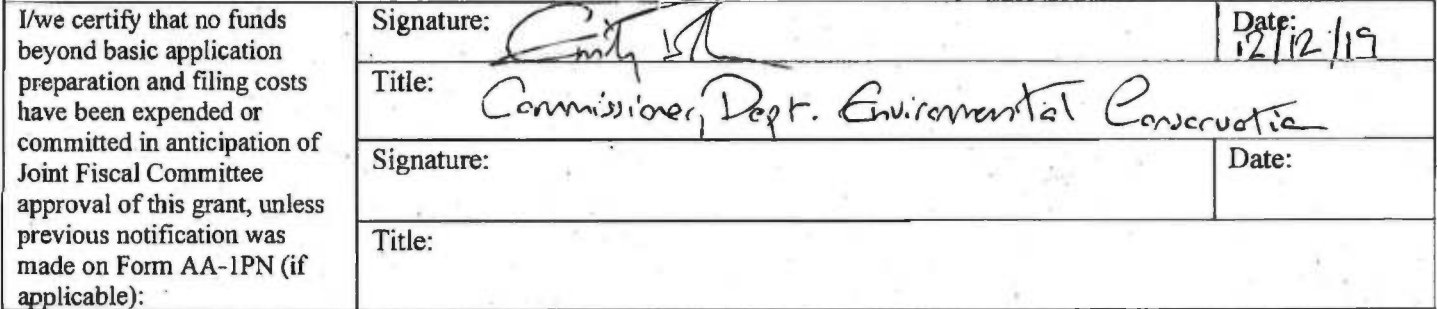 I/we certify that no funds
beyond basic application
preparation and filing costs
have been expended or
committed in anticipation of
Joint Fiscal Committee
approval of this grant, unless
previous notification was
made on Form AA-1PN (if
applicable):
Signature: Emily
Date: 12/12/19
Title: Commissioner, Dept. Environmental Conservation
Signature:
Date:
Title: